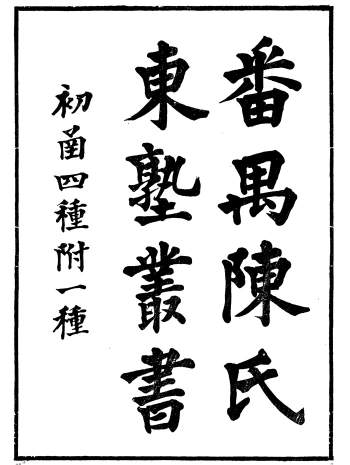 番禺陳氏
東塾叢書
初函四種附一種